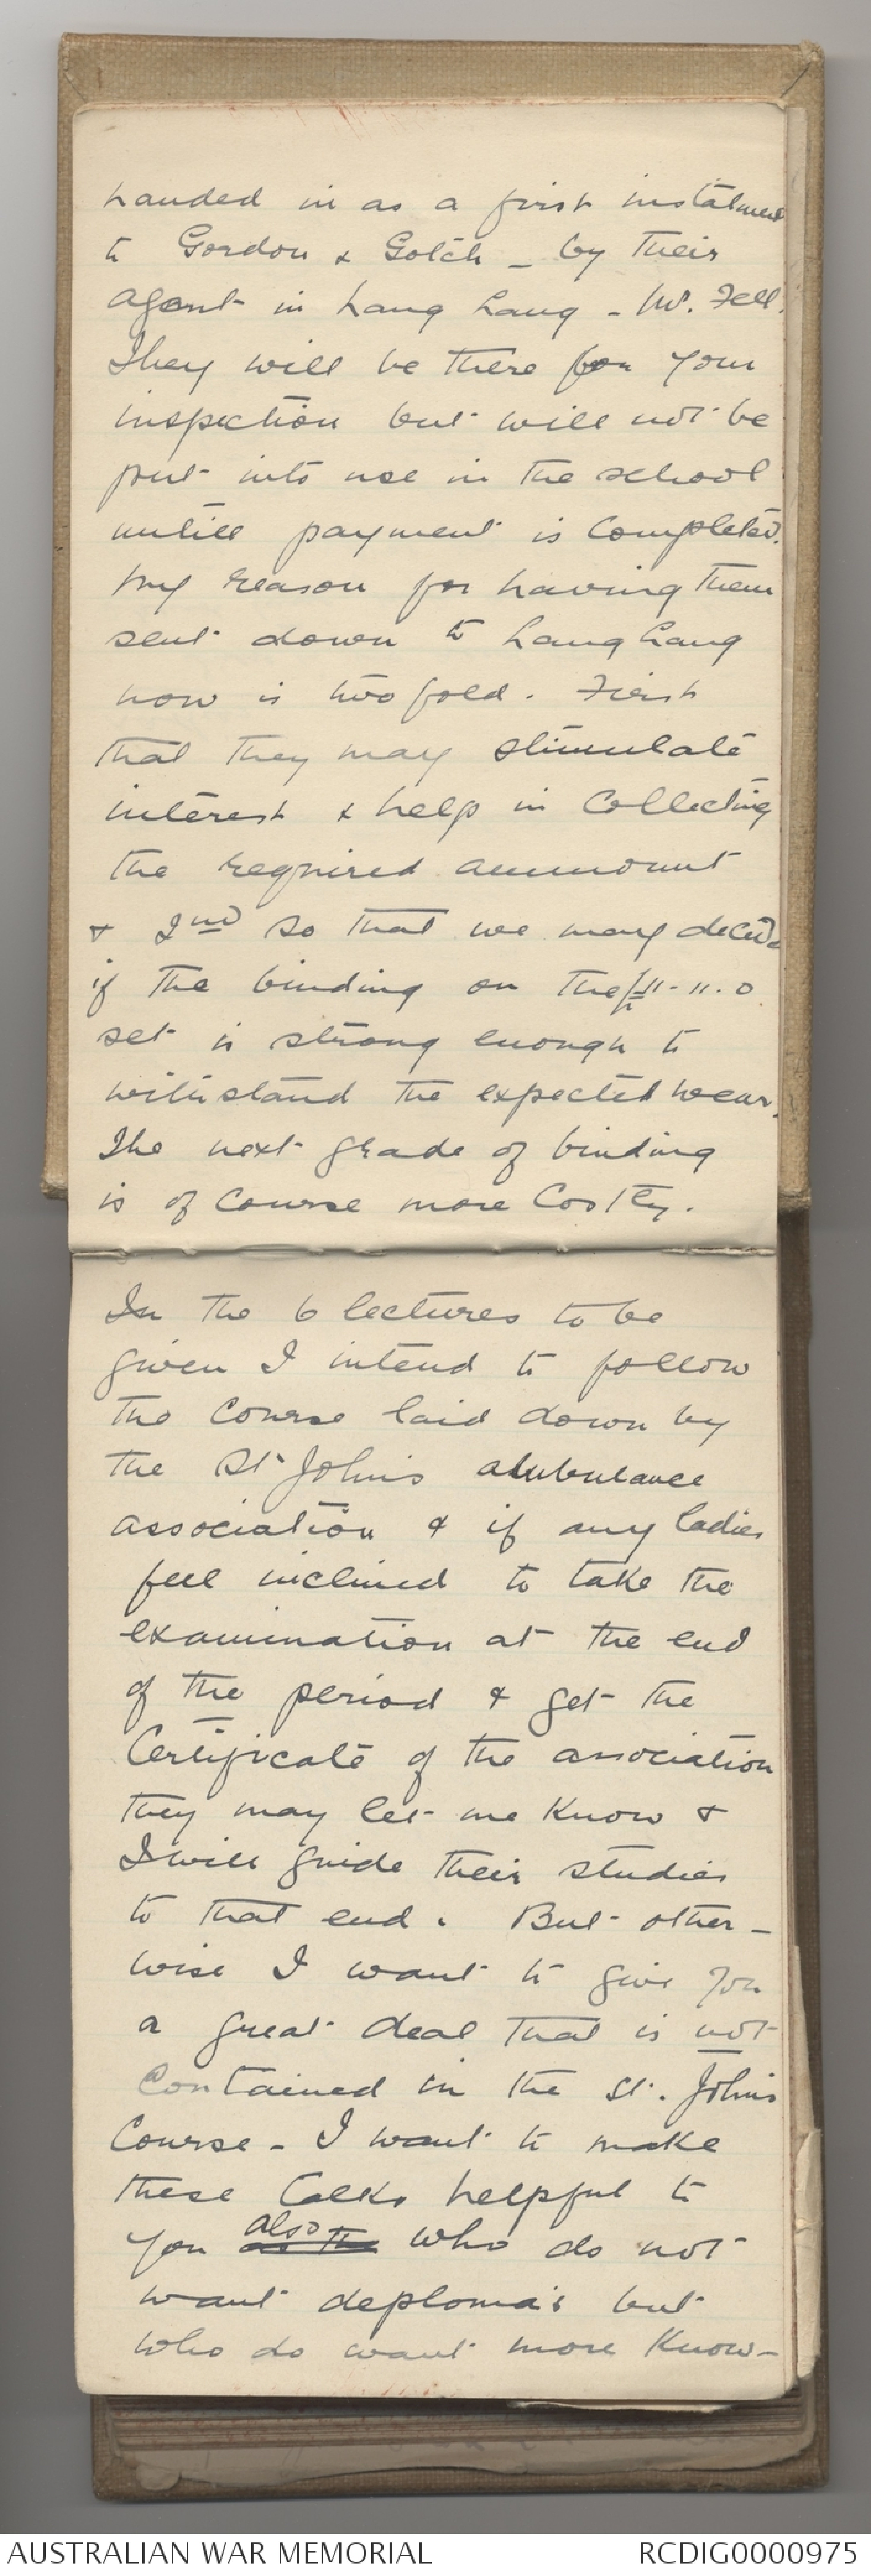 handed in as a first instalment
to Gordon & Gotch - by their
agent in Lang Lang - Mr. Fell.
They will be there for your
inspection but will not be
put into use in the school
untill payment is completed.
My reason for having them
sent down to Lang Lang
now is two fold. First
that they may stimulate
interest & help in Collecting
the required ammount
& 2nd so that we may decide
if the binding on the £11-11.0
set is strong enough to
withstand the expected wear.
The next grade of binding
is of course more Costly.
In the 6 lectures to be
given I intend to follow
the course laid down by
the St Johns ambulance
association & if any ladies
feel inclined to take the
examination at the end
of the period & get the
Certificate of the association
they may let me know &
I will guide their studies
to that end. But other-
wise I want to give you
a great deal that is not
Contained in the St. Johns
Course - I want to make
these talks helpful to
you also who do not
want deploma's but
who do want more Know-
AUSTRALIAN WAR MEMORIAL
RCDIG0000975